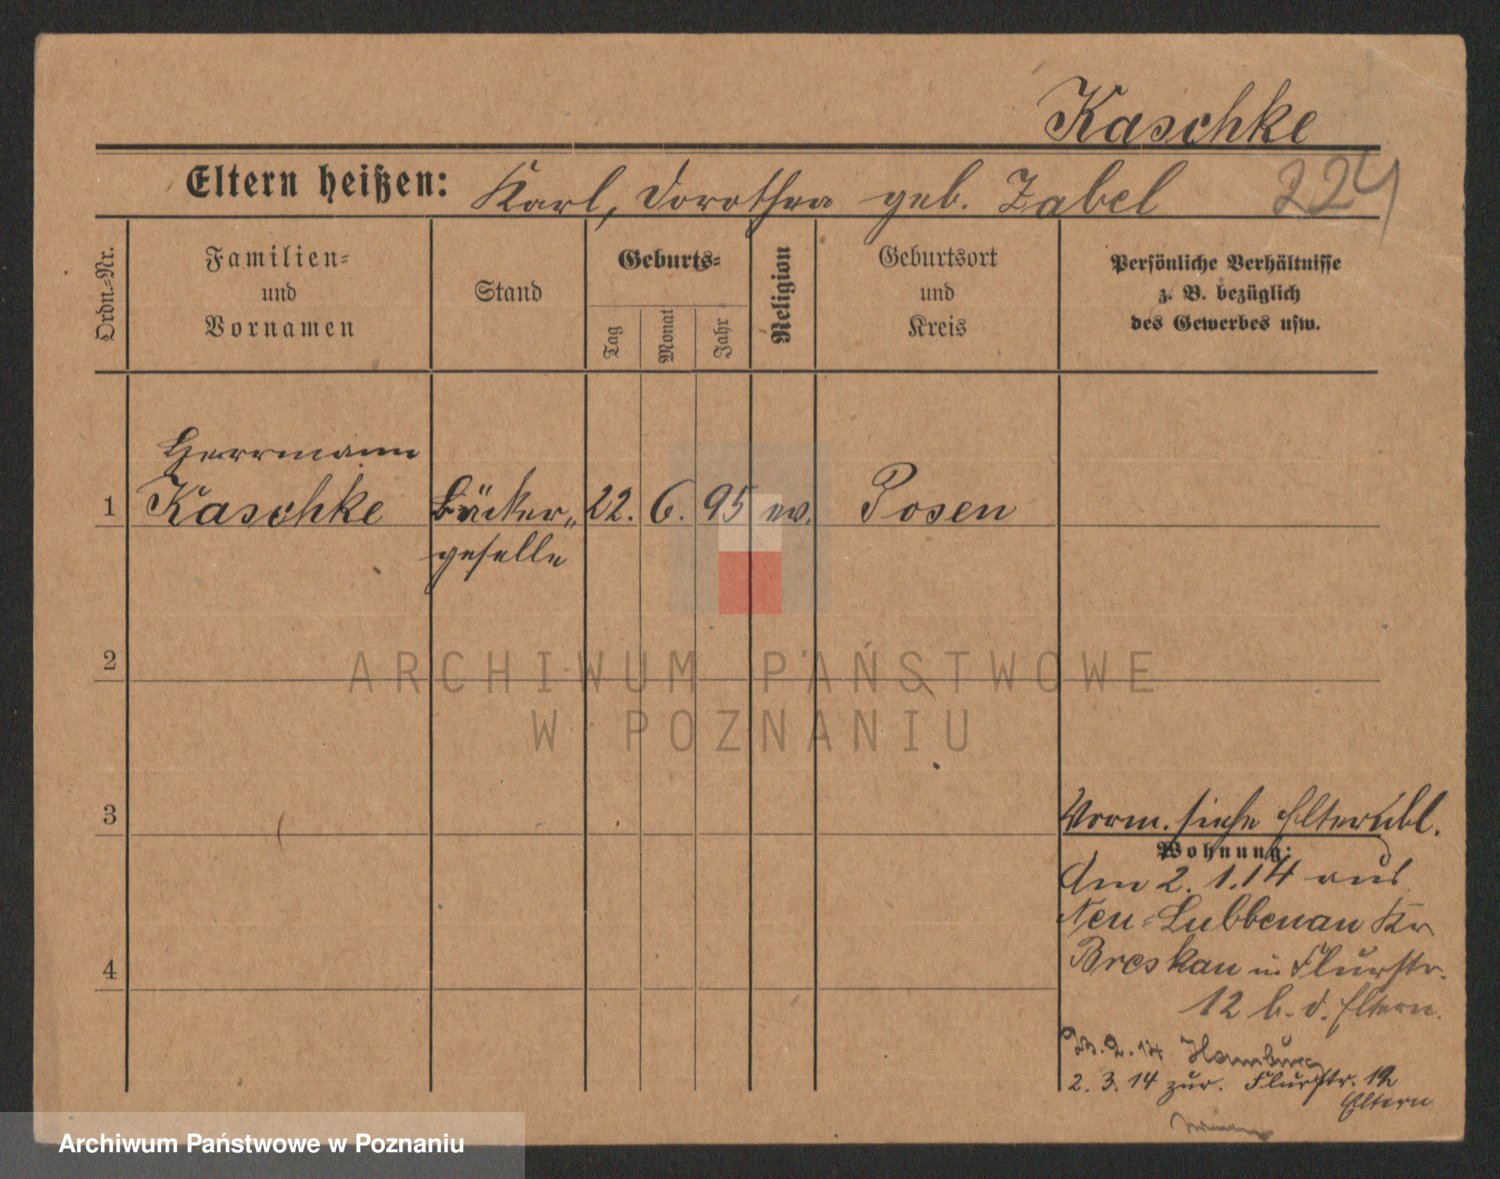 Kaschke
Eltern heißen: Karl, Dorothea geb. Zabel
224
Ordn.=Nr.
Familien=
und
Vornamen
Stand
Geburts=
Tag
Monat
Jahr
Religion
Geburtsort
und
Kreis
Persönliche Verhältnisse
z. B. bezüglich
des Gewerbes usw.
Herrmann
1 Kaschke Bäcker= 22. 6. 95 ev. Posen
geselle
2
ARCHIWUM PAŃSTWOWE
W POZNANIU
3
Vorm. siehe Elternbl.
Wohnung:
Am 2.1.14 aus
Neu=Lubbenau Kr
Breskau in Flurstr.
4
12 b. d. Eltern.
23.2.14 Hamburg
2.3.14 zur. Flurstr. 12
Eltern
Archiwum Państwowe w Poznaniu